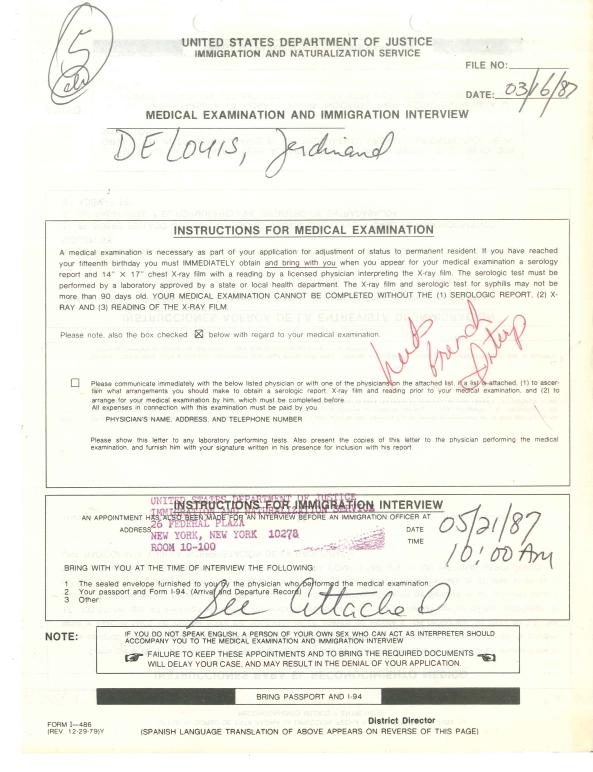 5
UNITED STATES DEPARTMENT OF JUSTICE
IMMIGRATION AND NATURALIZATION SERVICE
FILE NO:
DATE: 03/16/87
MEDICAL EXAMINATION AND IMMIGRATION INTERVIEW
DELOUIS, Ferdinand
INSTRUCTIONS FOR MEDICAL EXAMINATION
A medical examination is necessary as part of your application for adjustment of status to permanent resident. If you have reached
your fifteenth birthday you must IMMEDIATELY obtain and bring with you when you appear for your medical examination a serology
report and 14" X 17" chest X-ray film with a reading by a licensed physician interpreting the X-ray film. The serologic test must be
performed by a laboratory approved by a state or local health department. The X-ray film and serologic test for syphilis may not be
more than 90 days old. YOUR MEDICAL EXAMINATION CANNOT BE COMPLETED WITHOUT THE (1) SEROLOGIC REPORT, (2) X-
RAY AND (3) READING OF THE X-RAY FILM.
Please note, also the box checked ☒ below with regard to your medical examination.
needs
French
Interp
☐ Please communicate immediately with the below listed physician or with one of the physicians on the attached list, if a list is attached, (1) to ascer-
tain what arrangements you should make to obtain a serologic report, X-ray film and reading prior to your medical examination, and (2) to
arrange for your medical examination by him, which must be completed before
All expenses in connection with this examination must be paid by you
PHYSICIAN'S NAME, ADDRESS, AND TELEPHONE NUMBER
Please show this letter to any laboratory performing tests. Also present the copies of this letter to the physician performing the medical
examination, and furnish him with your signature written in his presence for inclusion with his report
UNITED STATES DEPARTMENT OF JUSTICE
INSTRUCTIONS FOR IMMIGRATION INTERVIEW
IMMIGRATION AND NATURALIZATION SERVICE
AN APPOINTMENT HAS ALSO BEEN MADE FOR AN INTERVIEW BEFORE AN IMMIGRATION OFFICER AT
ADDRESS 26 FEDERAL PLAZA
NEW YORK, NEW YORK 10278
ROOM 10-100
DATE 05/21/87
TIME 10:00 AM
BRING WITH YOU AT THE TIME OF INTERVIEW THE FOLLOWING:
1 The sealed envelope furnished to you by the physician who performed the medical examination.
2. Your passport and Form I-94. (Arrival and Departure Record)
3 Other: See Attached
NOTE:
IF YOU DO NOT SPEAK ENGLISH, A PERSON OF YOUR OWN SEX WHO CAN ACT AS INTERPRETER SHOULD
ACCOMPANY YOU TO THE MEDICAL EXAMINATION AND IMMIGRATION INTERVIEW
FAILURE TO KEEP THESE APPOINTMENTS AND TO BRING THE REQUIRED DOCUMENTS
WILL DELAY YOUR CASE, AND MAY RESULT IN THE DENIAL OF YOUR APPLICATION.
BRING PASSPORT AND I-94
District Director
FORM I—486
(REV. 12-29-79)Y
(SPANISH LANGUAGE TRANSLATION OF ABOVE APPEARS ON REVERSE OF THIS PAGE)